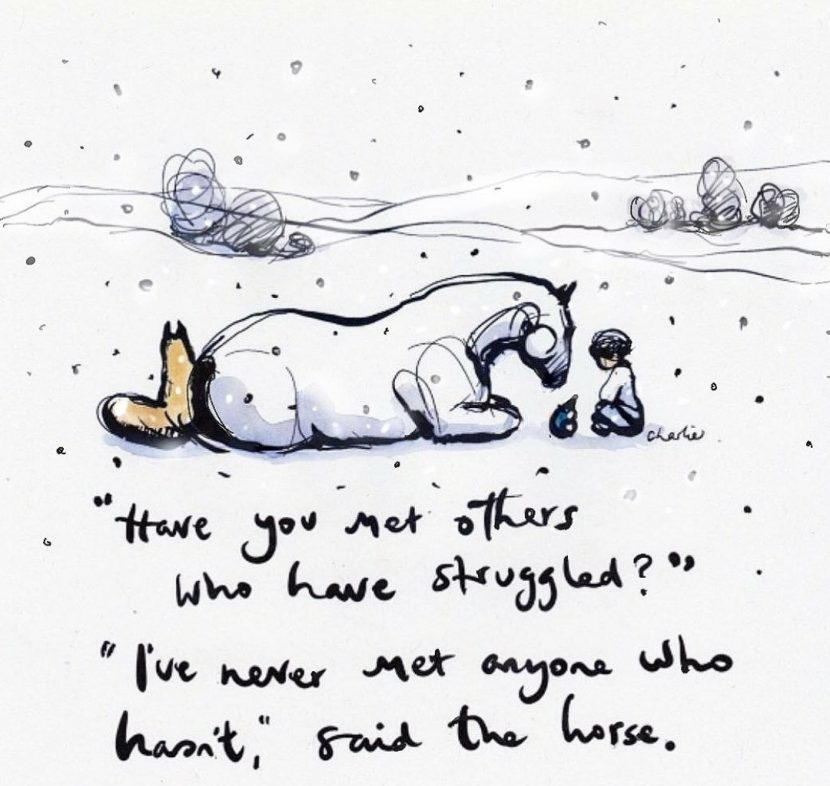 charlie
"Have you met others
who have struggled?"
"I've never met anyone who
hasn't," said the horse.